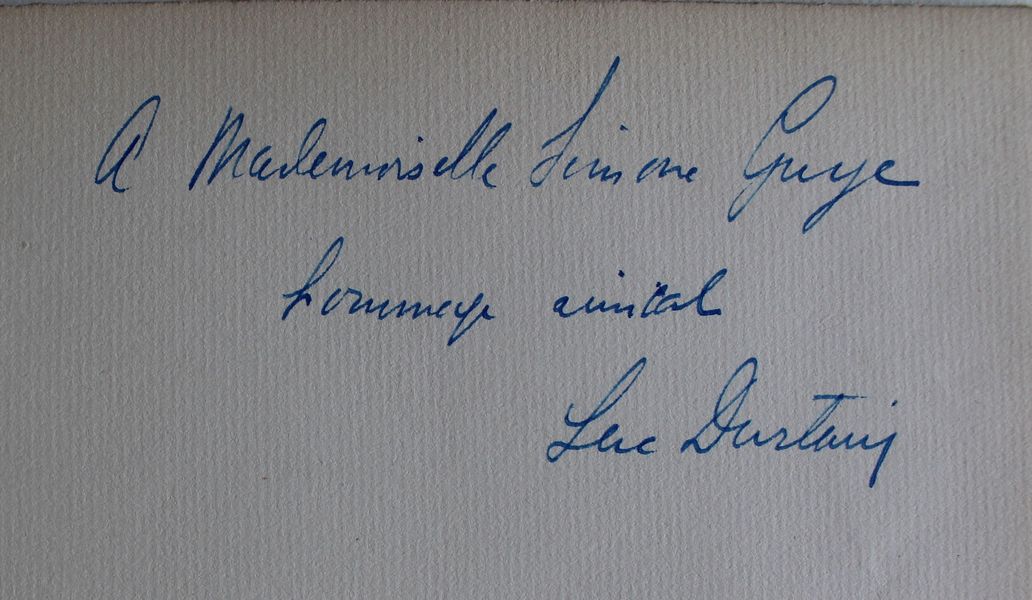 A Mademoiselle Simone Guye
hommage amical
Luc Durtain